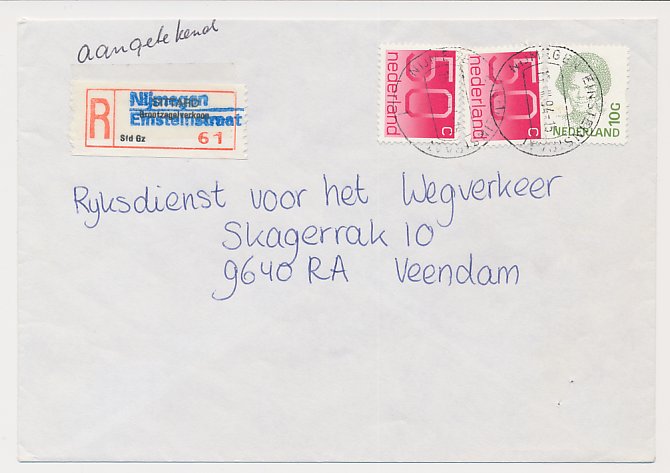 aangetekend
R
Nijmegen
SITTARD
Grootzegelverkoop
Einsteinstraat
Std Gz
61
50 c
nederland
50 c
nederland
10G
NEDERLAND
Ryksdienst voor het Wegverkeer
Skagerrak 10
9640 RA Veendam